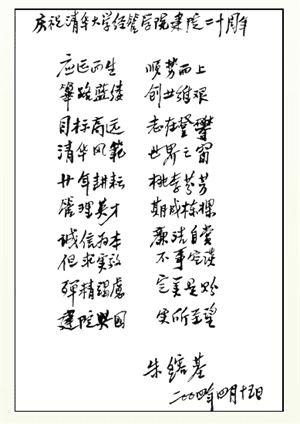 庆祝清华大学经管学院建院二十周年
应运而生 顺势而上
筚路蓝缕 创业维艰
目标高远 志在登攀
清华风范 世界之窗
廿年耕耘 桃李芬芳
管理英才 期成栋梁
诚信为本 廉洁自赏
但求实效 不事空谈
殚精竭虑 完美是
建院兴国 实所至望
朱镕基
二〇〇四年四月十五日